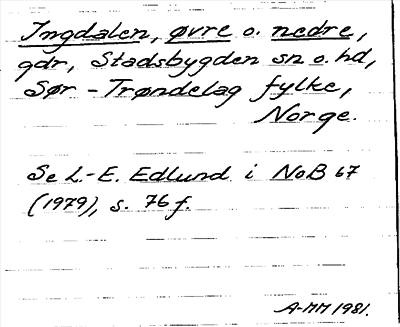 Ingdalen, øvre o. nedre,
gdr, Stadsbygden sn o. hd,
Sør-Trøndelag fylke,
Norge.
Se L.-E. Edlund i NoB 67
(1979), s. 76 f.
A-MM 1981.